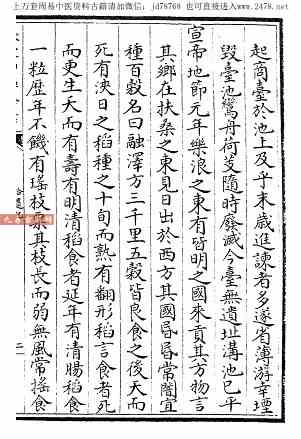 上万套周易中医资料古籍请加微信：jd78768 也可直接进入www.2478.net
起商臺於池上及乎末歳進諫者多遂省薄游幸堙
毁臺池鸞舟荷芰隨時廢滅今臺無遺址溝池已平
宣帝地節元年樂浪之東有背明之國來貢其方物言
其鄉在扶桑之東見日出於西方其國昬昬常闇宜
種百穀名曰融澤方三千里五穀皆良食之後天而
死有浹日之稻種之十旬而熟有翻形稻言食者死
而更生夭而有壽有明清稻食者延年有清腸稻食
一粒歴年不饑有瑤枝粟其枝長而弱無風常揺食
拾遺記
二